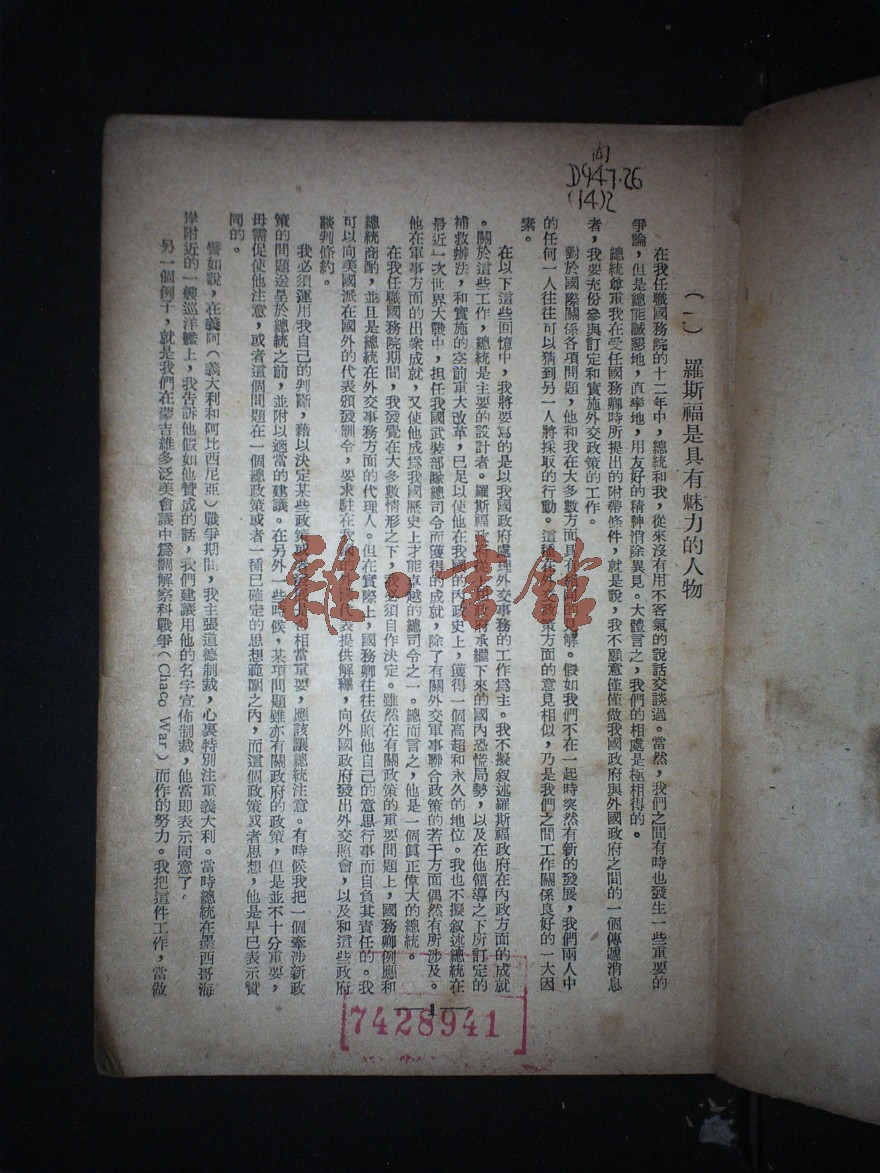 向
D947·26
(14)2
(一) 羅斯福是具有魅力的人物
在我任職國務院的十二年中，總統和我，從來沒有用不客氣的說話交談過。當然，我們之間有時也發生一些重要的
爭論，但是總能誠懇地，直率地，用友好的精神消除異見。大體言之，我們的相處是極相得的。
總統尊重我在受任國務卿時所提出的附帶條件，就是說，我不願意僅僅做我國政府與外國政府之間的一個傳遞消息
者，我要充份參與訂定和實施外交政策的工作。
對於國際關係各項問題，他和我在大多數方面具有相同的見解。假如我們不在一起時突然有新的發展，我們兩人中
的任何一人往往可以猜到另一人將採取的行動。這種在外交政策方面的意見相似，乃是我們之間工作關係良好的一大因
素。
在以下這些回憶中，我將要寫的是以我國政府處理外交事務的工作爲主。我不擬叙述羅斯福政府在內政方面的成就
。關於這些工作，總統是主要的設計者。羅斯福政府從上屆政府承繼下來的國內恐慌局勢，以及在他領導之下所訂定的
補救辦法，和實施的空前重大改革，已足以使他在我國的內政史上，獲得一個高超和永久的地位。我也不擬叙述總統在
最近一次世界大戰中，担任我國武裝部隊總司令而獲得的成就，除了有關外交軍事聯合政策的若干方面偶然有所涉及。
他在軍事方面的出衆成就，又使他成爲我國歷史上才能卓越的總司令之一。總而言之，他是一個眞正偉大的總統。
在我任職國務院期間，我發覺在大多數情形之下，我必須自作決定。雖然在有關政策的重要問題上，國務卿例應和
總統商酌，並且是總統在外交事務方面的代理人。但在實際上，國務卿往往依照他自己的意思行事而自負其責任的。我
可以向美國派在國外的代表頒發制令，要求駐在我國的外國代表提供解釋，向外國政府發出外交照會，以及和這些政府
談判條約。
我必須運用我自己的判斷，藉以決定某些政策或　　　相當重要，應該讓總統注意。有時候我把一個牽涉新政
策的問題送呈於總統之前，並附以適當的建議。在另外一些時候，某項問題雖亦有關政府的政策，但是並不十分重要，
毋需促使他注意，或者這個問題在一個總政策或者一種已確定的思想範圍之內，而這個政策或者思想，他是早已表示贊
同的。
譬如說，在義阿（義大利和阿比西尼亞）戰爭期間，我主張道德制裁，心裏特別注重義大利。當時總統在墨西哥海
岸附近的一艘巡洋艦上，我告訴他假如他贊成的話，我們建議用他的名字宣佈制裁，他當即表示同意了。
另一個例子，就是我們在蒙吉維多泛美會議中爲制解察科戰爭（Chaco War）而作的努力。我把這件工作，當做
—1—
7428941
雜·書館